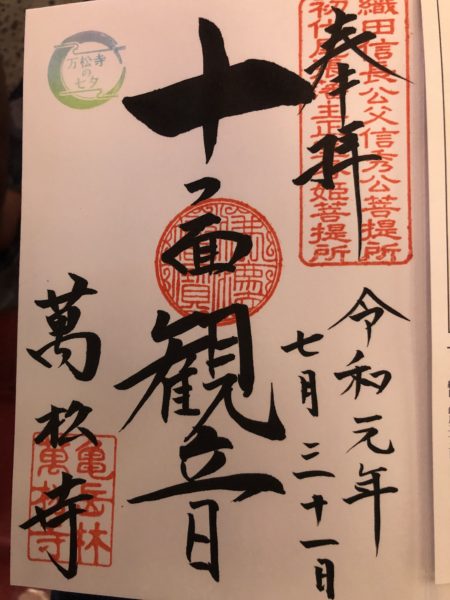 織田信長公父信秀公菩提所
初代 菩提所
奉拝
令和元年
七月三十一日
十一面観音
萬松寺
亀岳林
萬松寺
万松寺
の
七夕